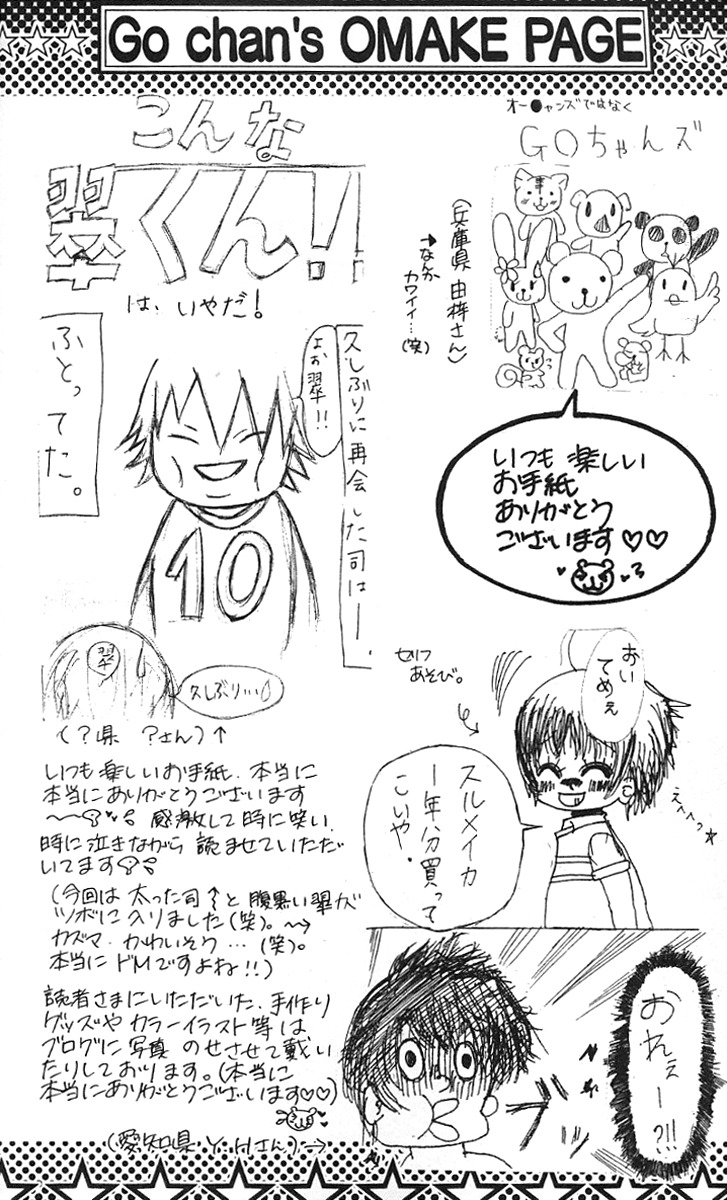 Go chan's OMAKE PAGE
オー●ャンズではなく
GOちゃんズ
(兵庫県 由梓さん)
→なんか
カワイイ…
(笑)
いつも楽しい
お手紙
ありがとう
ございます♡♡
こんな
翠くん!!
は、いやだ!
久しぶりに再会した司はー、
よお翠!!
ふとってた。
10
翠
久しぶり…
(?県 ?さん)↑
いつも楽しいお手紙、本当に
本当にありがとうございます
感激して時に笑い、
時に泣きながら 読ませていただ
いてます
(今回は 太った司↑と腹黒い翠が
ツボに入りました(笑)。
カズマ、かわいそう…(笑)。
本当に ドMですよね!!)
読者さまにいただいた、手作り
グッズや カラーイラスト等は
ブログに写真 のせさせて戴い
たりしております。(本当に
本当にありがとうございます♡♡)
(愛知県 Y.Hさん)→
セリフ
あそび。
おい
てめぇ
スルメイカ
1年分買って
こいや。
えへへっ☆
おれぇー?!!
ブッ